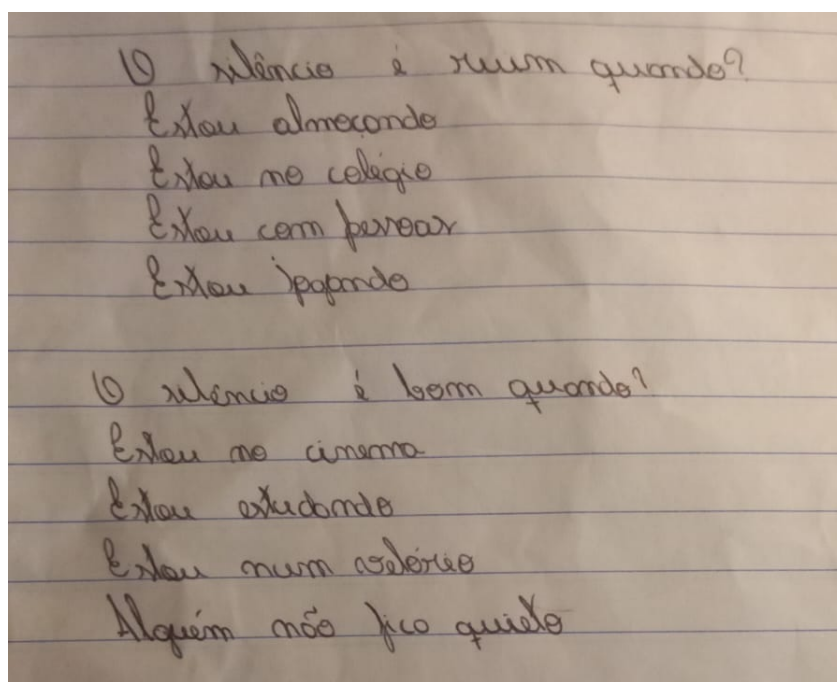 O silêncio é ruum quando?
Estou almoçando
Estou no colégio
Estou com pessoas
Estou jogando
O silêncio é bom quando?
Estou no cinema
Estou estudando
Estou num velório
Alguém não fica quieto